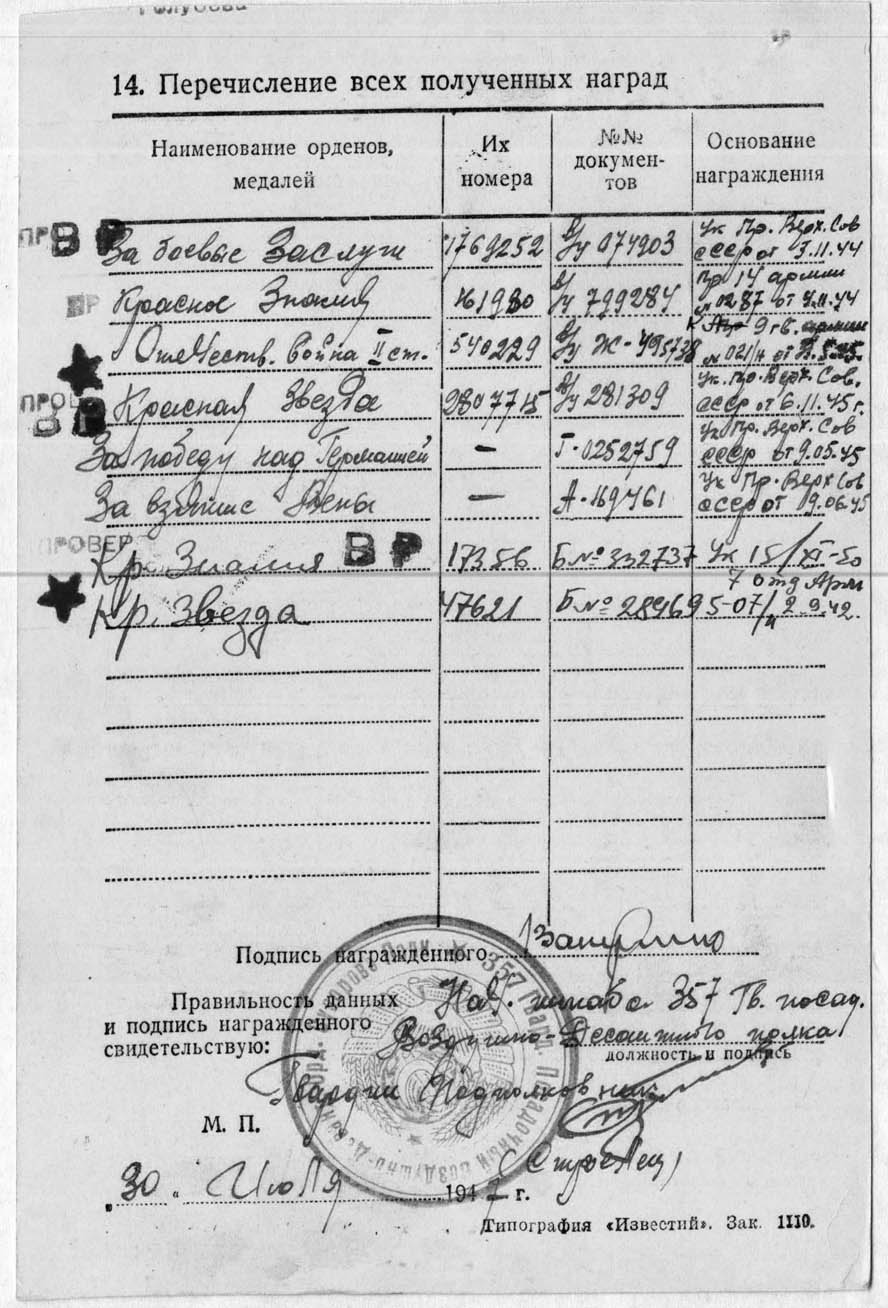 14. Перечисление всех полученных наград
Наименование орденов, медалей
Их номера
№№ докумен-тов
Основание награждения
За боевые Заслуги 1769252 074903 Ук Пр. Верх. Сов
СССР от 3.11.44
Красное Знамя 799284 Пр 14 армии
№ 0287 от
Отечеств. Война II ст. 540229 Ж-495738 9 гв. армии
№ 021/н от
Красная Звезда 2807715 281309 Ук. Пр. Верх. Сов.
СССР от 6.11.45 г.
За победу над Германией — Г-0252759 Ук Пр. Верх. Сов
СССР от 9.05.45
За взятие Вены — А-169461 Ук Пр. Верх Сов
СССР от 9.06.45
ПРОВЕР
ВР
Кр. Знамя 17356 Б № 332737 Ук 15/XI-50
7 отд Арм
Кр. Звезда 47621 Б № 28469 5-07/н 2.9.42
Подпись награжденного
Правильность данных
и подпись награжденного
свидетельствую:
Нач. штаба 357 Гв. посад.
Воздушно-Десантного полка
должность и подпись
Гвардии Подполковник
М. П.
(Стрелец)
„30“ Июля 1947 г.
Типография «Известий». Зак. 1110.